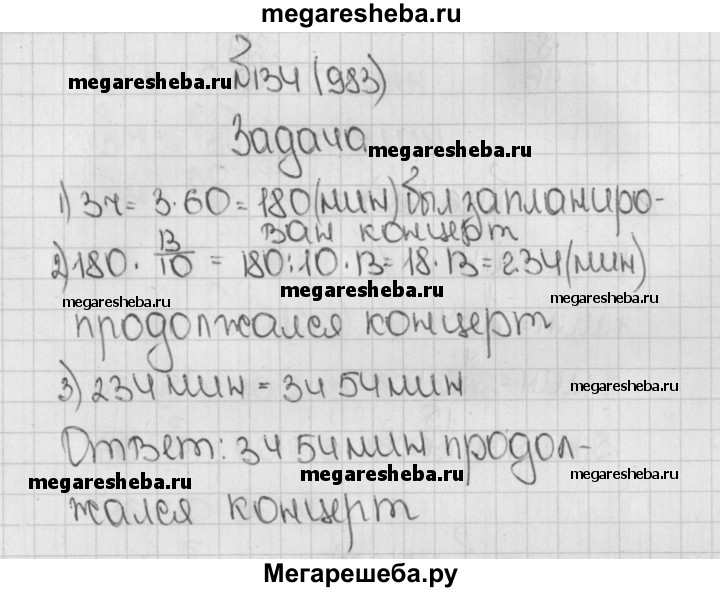 megaresheba.ru
№134 (983)
megaresheba.ru
Задача
megaresheba.ru
1) 3ч = 3·60 = 180(мин) был запланиро-
ван концерт
2) 180 · 13/10 = 180:10·13 = 18·13 = 234(мин)
megaresheba.ru
megaresheba.ru
megaresheba.ru
продолжался концерт
3) 234мин = 3ч 54мин
megaresheba.ru
Ответ: 3ч 54мин продол-
megaresheba.ru
megaresheba.ru
megaresheba.ru
жался концерт
Мегарешеба.ру